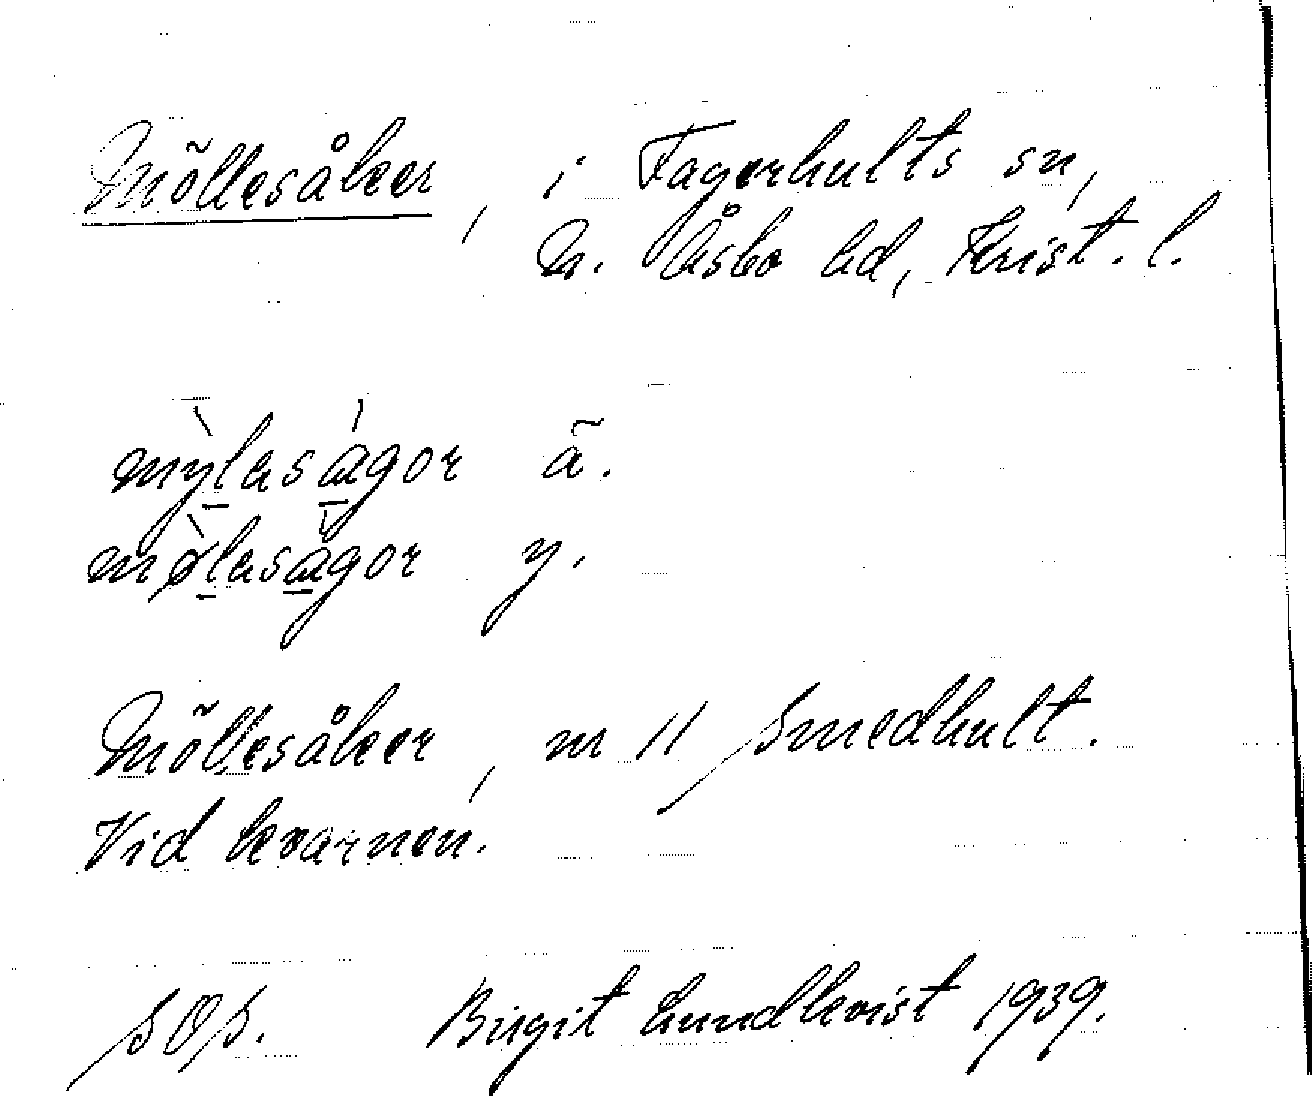 Möllesåker, i Fagerhults sn,
N. Åsbo hd, Krist. l.
mỳlasågor ä.
mø̀lasågor y.
Möllesåker, nr 11 Smedhult.
Vid kvarnen.
SOS. Birgit Lundkvist 1939.